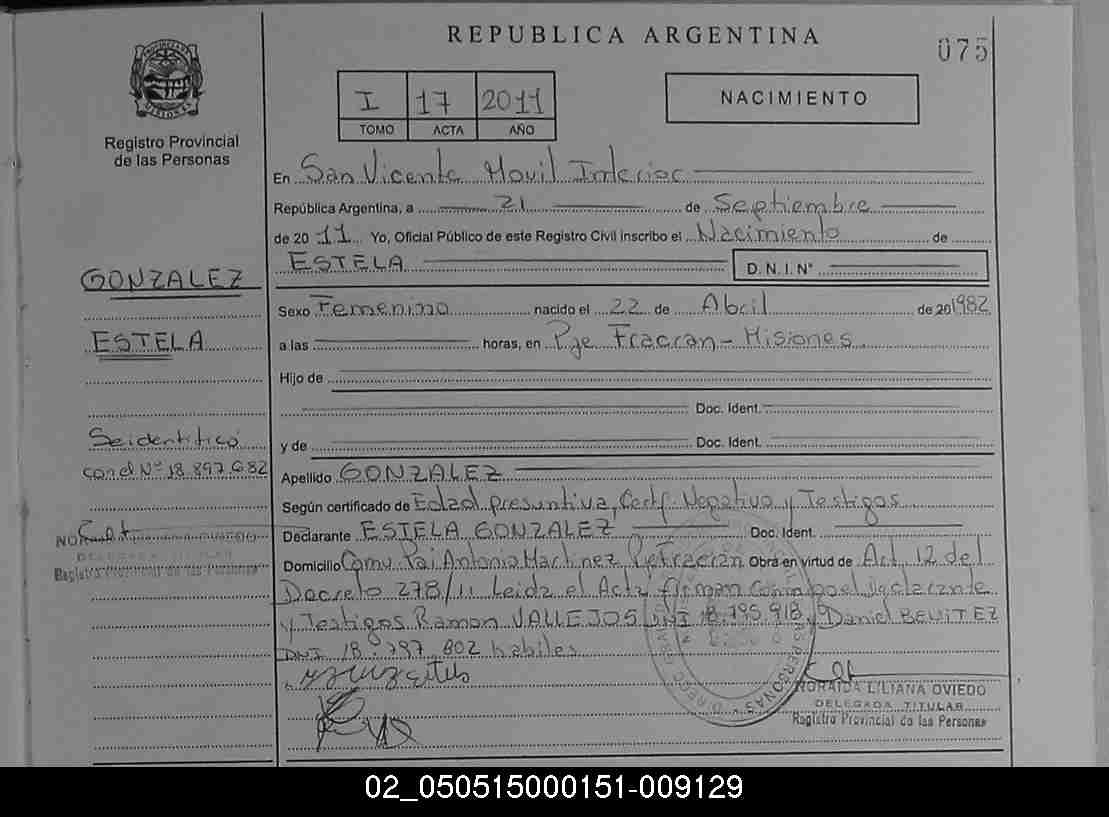 REPUBLICA ARGENTINA
075
PROVINCIA DE MISIONES
Registro Provincial
de las Personas
I 17 2011
TOMO ACTA AÑO
NACIMIENTO
En San Vicente Movil Interior
República Argentina, a 21 de Septiembre
de 20 11 Yo, Oficial Público de este Registro Civil inscribo el Nacimiento de
ESTELA D.N.I. N°
GONZALEZ
ESTELA
Sexo Femenino nacido el 22 de Abril de 20 1982
a las horas, en Pje Fracran - Misiones
Hijo de
Doc. Ident.
y de Doc. Ident.
Se identificó
con el N° 18.897.682
Apellido GONZALEZ
Según certificado de Edad presuntiva, Certf. Negativo y Testigos
Declarante ESTELA GONZALEZ Doc. Ident.
Domicilio Comu Pai Antonio Martinez Pje Fracran Obra en virtud de Act. 12 del
Decreto 278/11 Leida el Acta firman Conmigo el declarante
y Testigos Ramon VALLEJOS DNI 18.795.918 y Daniel BENITEZ
DNI 18.797.802 habiles
DELEGADA TITULAR
Registro Provincial de las Personas
NORAIDA LILIANA OVIEDO
DELEGADA TITULAR
Registro Provincial de las Personas
02_050515000151-009129